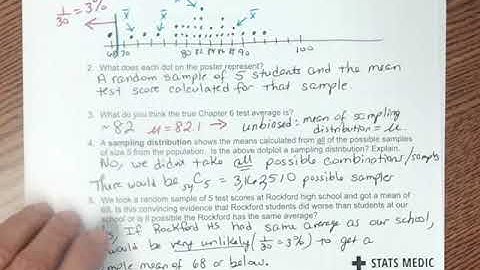 1/30 = 3%
x̄ x̄ x̄ x̄
68 70 80 90 100
2. What does each dot on the poster represent?
A random sample of 5 students and the mean
test score calculated for that sample.
3. What do you think the true Chapter 6 test average is?
~82 μ = 82.1 → unbiased: mean of sampling
distribution = μ.
4. A sampling distribution shows the means calculated from all of the possible samples
of size 5 from the population. Is the above dotplot a sampling distribution? Explain.
No, we didn't take all possible combinations/samples
There would be 54C5 = 3,162,510 possible samples
5. We took a random sample of 5 test scores at Rockford high school and got a mean of
68. Is this convincing evidence that Rockford students did worse than students at our
school or is it possible the Rockford has the same average?
If Rockford HS had same average as our school,
would be very unlikely (1/30 = 3%) to get a
sample mean of 68 or below.
STATS MEDIC